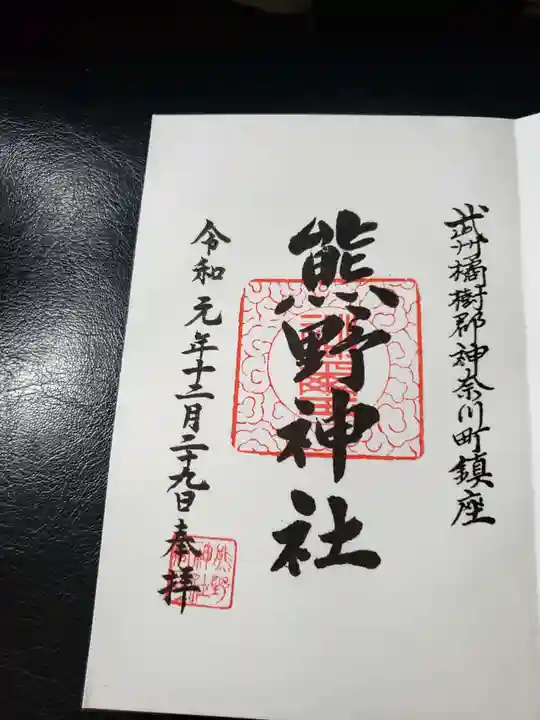 武州橘樹郡神奈川町鎮座
熊野神社
令和元年十二月二十九日奉拝
熊野
神社